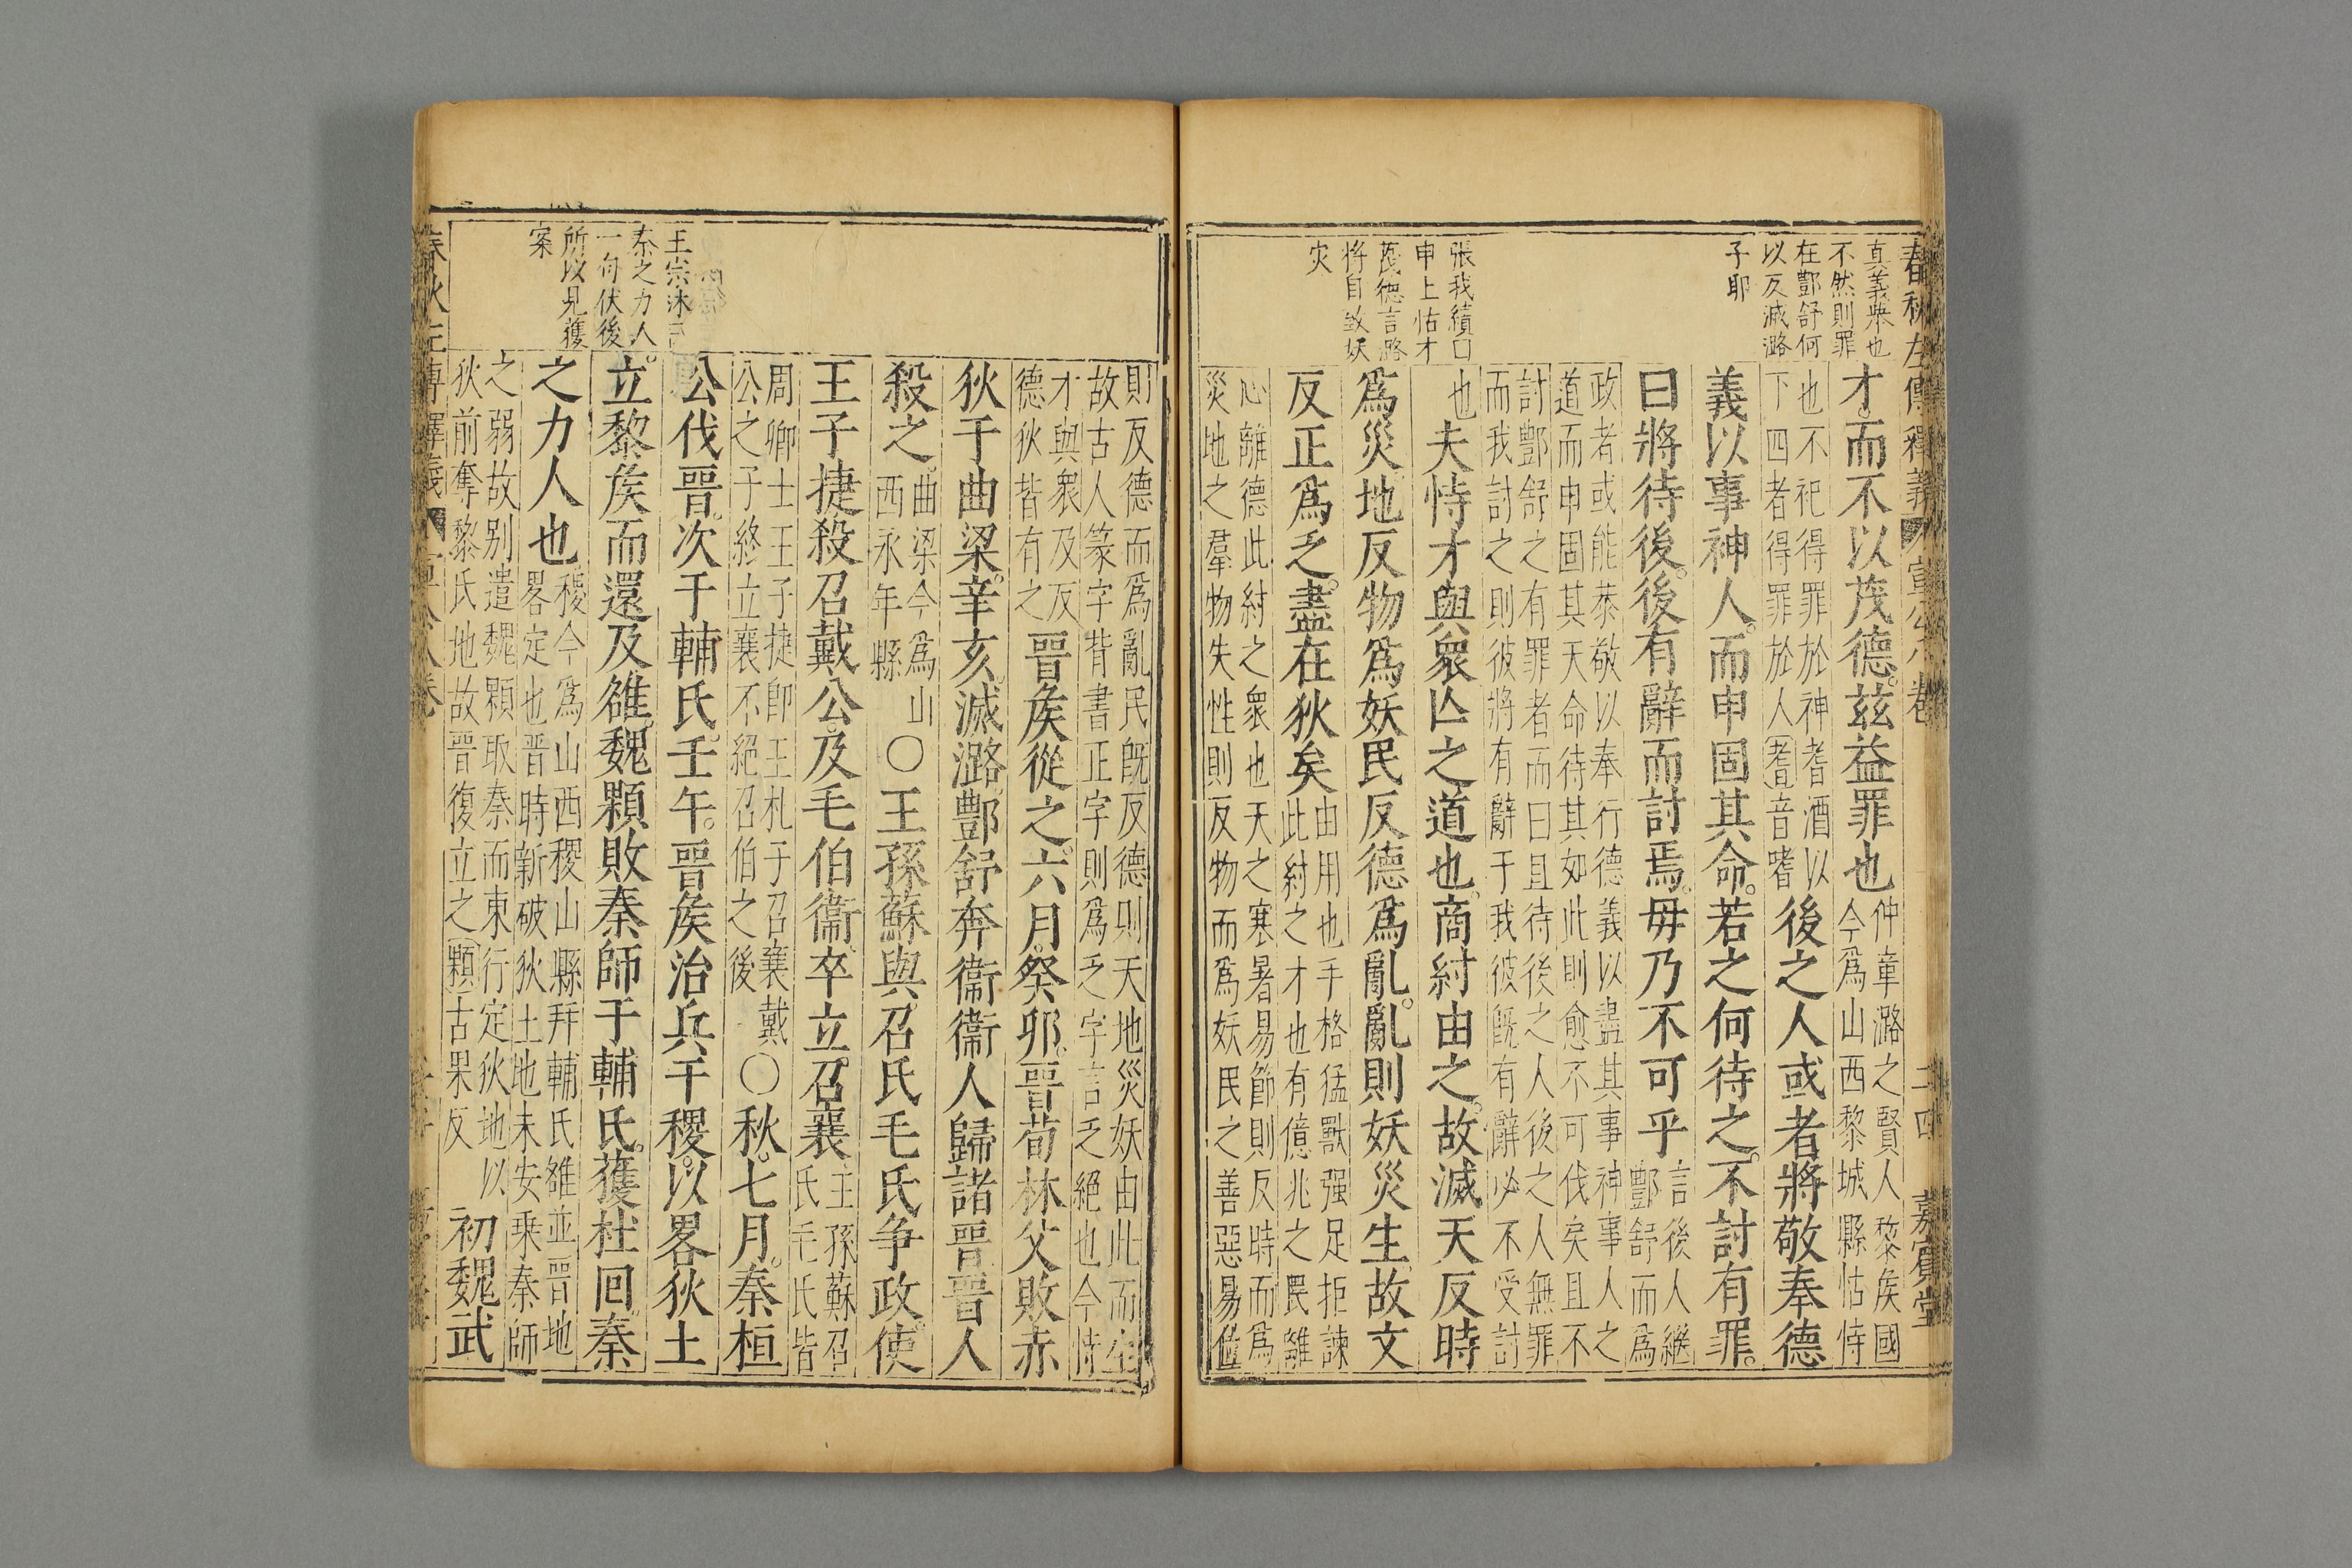 春秋左傳釋義
宣公八卷
二四
嘉賓堂
真義舉也
不然則罪
在酆舒何
以反滅潞
子耶
張我績曰
申上怙才
茂德言潞
將自致妖
灾
才而不以茂德茲益罪也
仲章潞之賢人黎矦國
今爲山西黎城縣怙恃
也不祀得罪於神耆酒以
下四者得罪於人耆音嗜
後之人或者將敬奉德
義以事神人而申固其命若之何待之不討有罪
曰將待後後有辭而討焉毋乃不可乎
言後人繼
酆舒而爲
政者或能恭敬以奉行德義以盡其事神事人之
道而申固其天命待其如此則愈不可伐矣且不
討酆舒之有罪者而曰且待後之人後之人無罪
而我討之則彼將有辭于我彼旣有辭必不受討
也
夫恃才與衆亾之道也商紂由之故滅天反時
爲災地反物爲妖民反德爲亂亂則妖災生故文
反正爲乏盡在狄矣
由用也手格猛獸强足拒諫
此紂之才也有億兆之罠離
心離德此紂之衆也天之寒暑易節則反時而爲
災地之羣物失性則反物而爲妖民之善惡易位
則反德而爲亂民旣反德則天地災妖由此而生
故古人篆字背書正字則爲乏字言乏絕也今恃
才與衆及反
德狄皆有之
晉矦從之六月癸卯晉荀林父敗赤
狄于曲梁辛亥滅潞酆舒奔衞衞人歸諸晉晉人
殺之
曲梁今爲山
西永年縣
○王孫蘇與召氏毛氏争政使
王子捷殺召戴公及毛伯衞卒立召襄
王孫蘇召
氏毛氏皆
周卿士王子捷卽王札子召襄戴
公之子終立襄不絕召伯之後
○秋七月秦桓
公伐晉次于輔氏壬午晉矦治兵于稷以畧狄土
立黎矦而還及雒魏顆敗秦師于輔氏獲杜囘秦
之力人也
稷今爲山西稷山縣并輔氏雒並晉地
畧定也晉時新破狄土地未安乗秦師
之弱故别遣魏顆取秦而東行定狄地以
狄前奪黎氏地故晉復立之顆古果反
初魏武
王宗沐曰
秦之力人
一句伏後
所以見獲
案
春秋左傳釋義